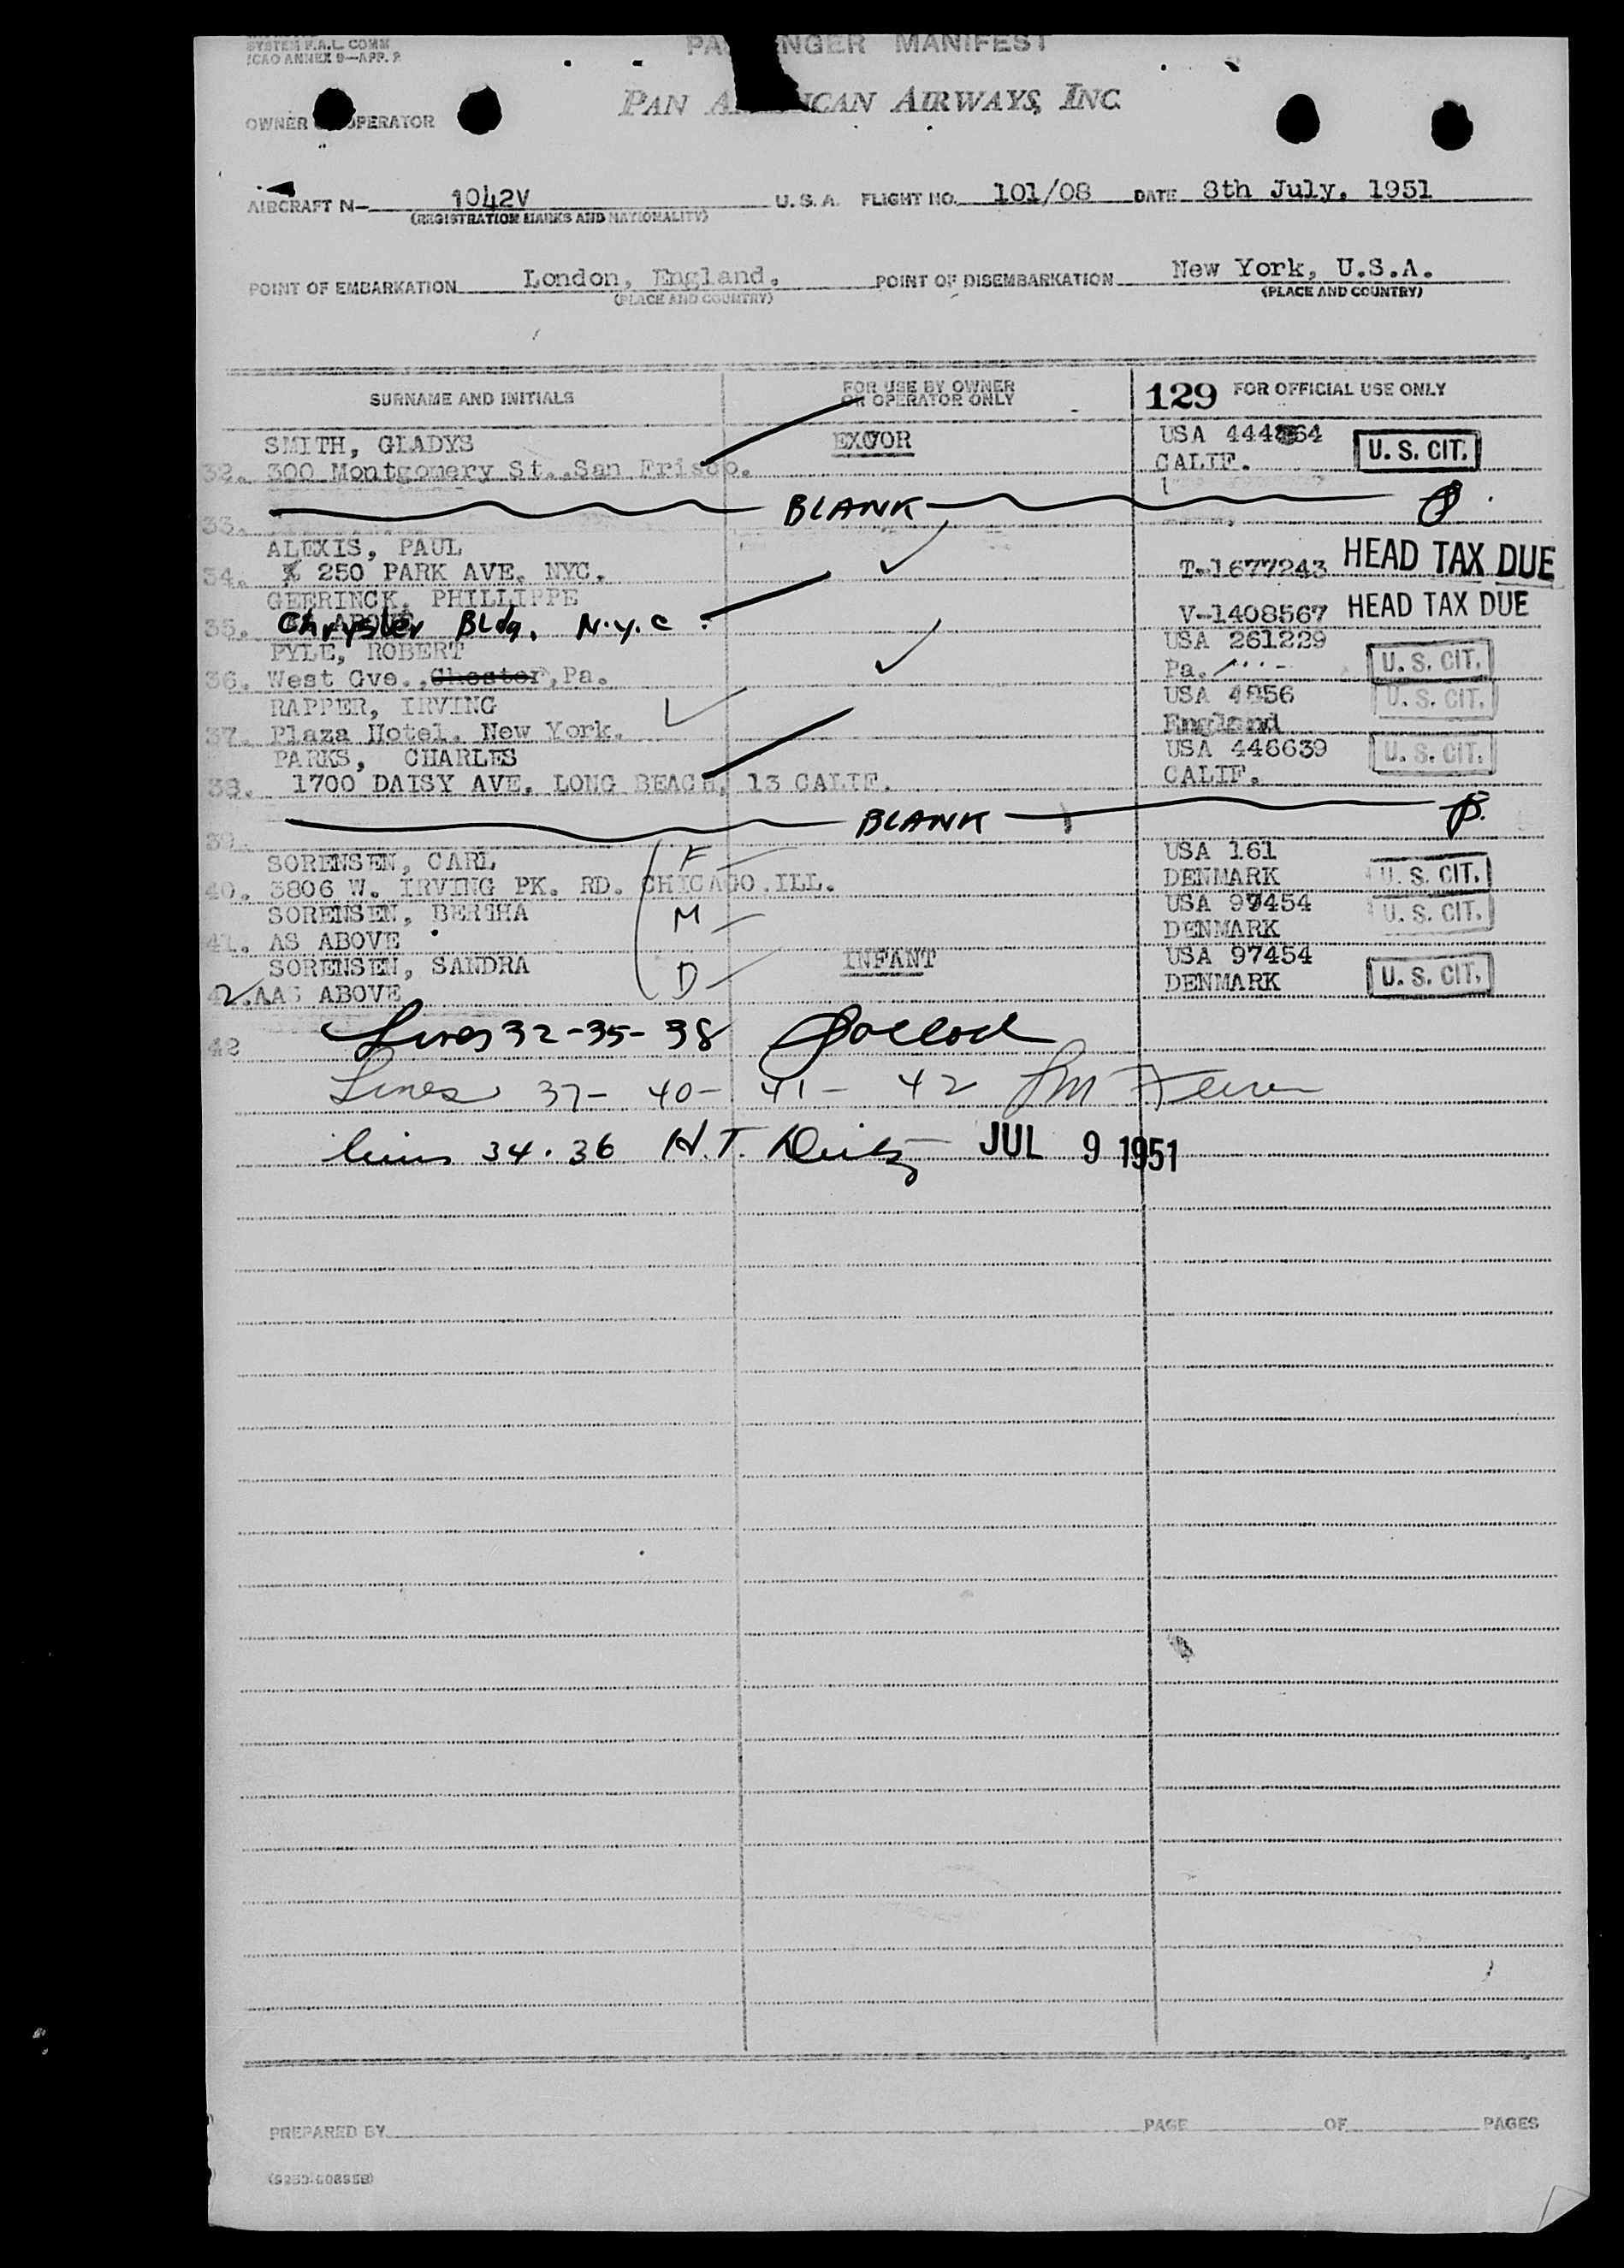 SYSTEM P.A.L. COMM
ICAO ANNEX 9—APP. 2
PA NGER MANIFEST
PAN A ICAN AIRWAYS, INC.
OWNER OPERATOR
AIRCRAFT N- 1042V U. S. A. FLIGHT NO. 101/08 DATE 8th July, 1951
(REGISTRATION MARKS AND NATIONALITY)
POINT OF EMBARKATION London, England. POINT OF DISEMBARKATION New York, U.S.A.
(PLACE AND COUNTRY) (PLACE AND COUNTRY)
SURNAME AND INITIALS FOR USE BY OWNER OR OPERATOR ONLY 129 FOR OFFICIAL USE ONLY
SMITH, GLADYS USA U. S. CIT.
32. 300 Montgomery St.,San Frisco. CALIF.
33. BLANK
ALEXIS, PAUL
34. 250 PARK AVE. NYC. T-1677243 HEAD TAX DUE
GEERINCK, PHILLIPPE
35. Chrysler Bldg. N.Y.C. V-1408567 HEAD TAX DUE
PYLE, ROBERT USA 261229
36. West Gve.,Chester,Pa. Pa. U. S. CIT.
RAPPER, IRVING USA 4856 U. S. CIT.
37. Plaza Hotel. New York. England
PARKS, CHARLES USA 446639 U. S. CIT.
38. 1700 DAISY AVE. LONG BEACH, 13 CALIF. CALIF.
39. BLANK
SORENSEN, CARL F USA 161
40. 3806 W. IRVING PK. RD. CHICAGO.ILL. DENMARK U. S. CIT.
SORENSEN, BERTHA M USA 97454 U. S. CIT.
41. AS ABOVE DENMARK
SORENSEN, SANDRA D INFANT USA 97454
42. AAS ABOVE DENMARK U. S. CIT.
42 Lines 32-35-38
Lines 37- 40- 41- 42
lines 34.36 H.T. JUL 9 1951
PREPARED BY PAGE OF PAGES